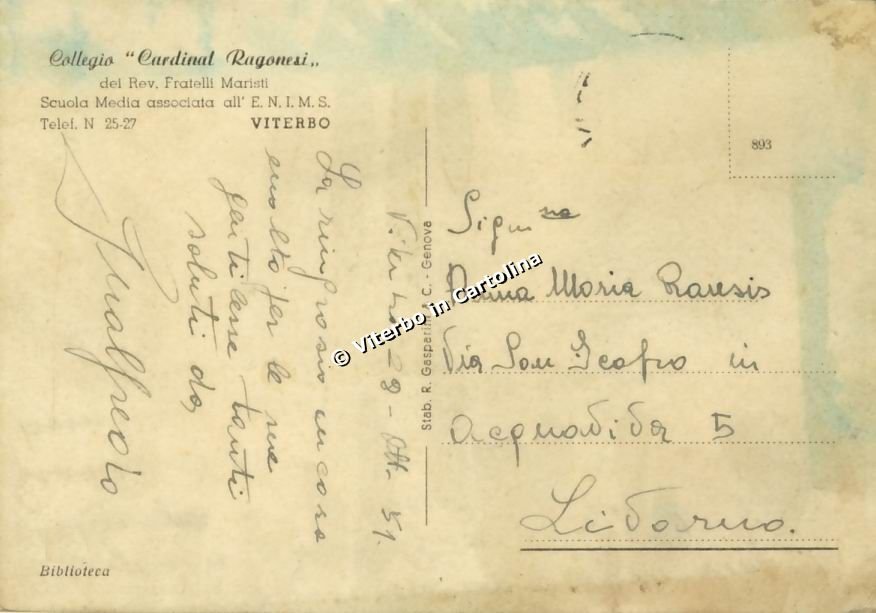 Collegio "Cardinal Ragonesi„
dei Rev. Fratelli Maristi
Scuola Media associata all' E. N. I. M. S.
Telef. N 25-27 VITERBO
Viterbo - 28 - Ott. 51.
La ringrazio ancora
molto per le sue
gentilezze tanti
saluti da
Gualfredo
Stab. R. Gasparini & C. - Genova
893
Sig.na
Anna Maria
Via San in
Acquaviva 5
Livorno.
Biblioteca
© Viterbo in Cartolina